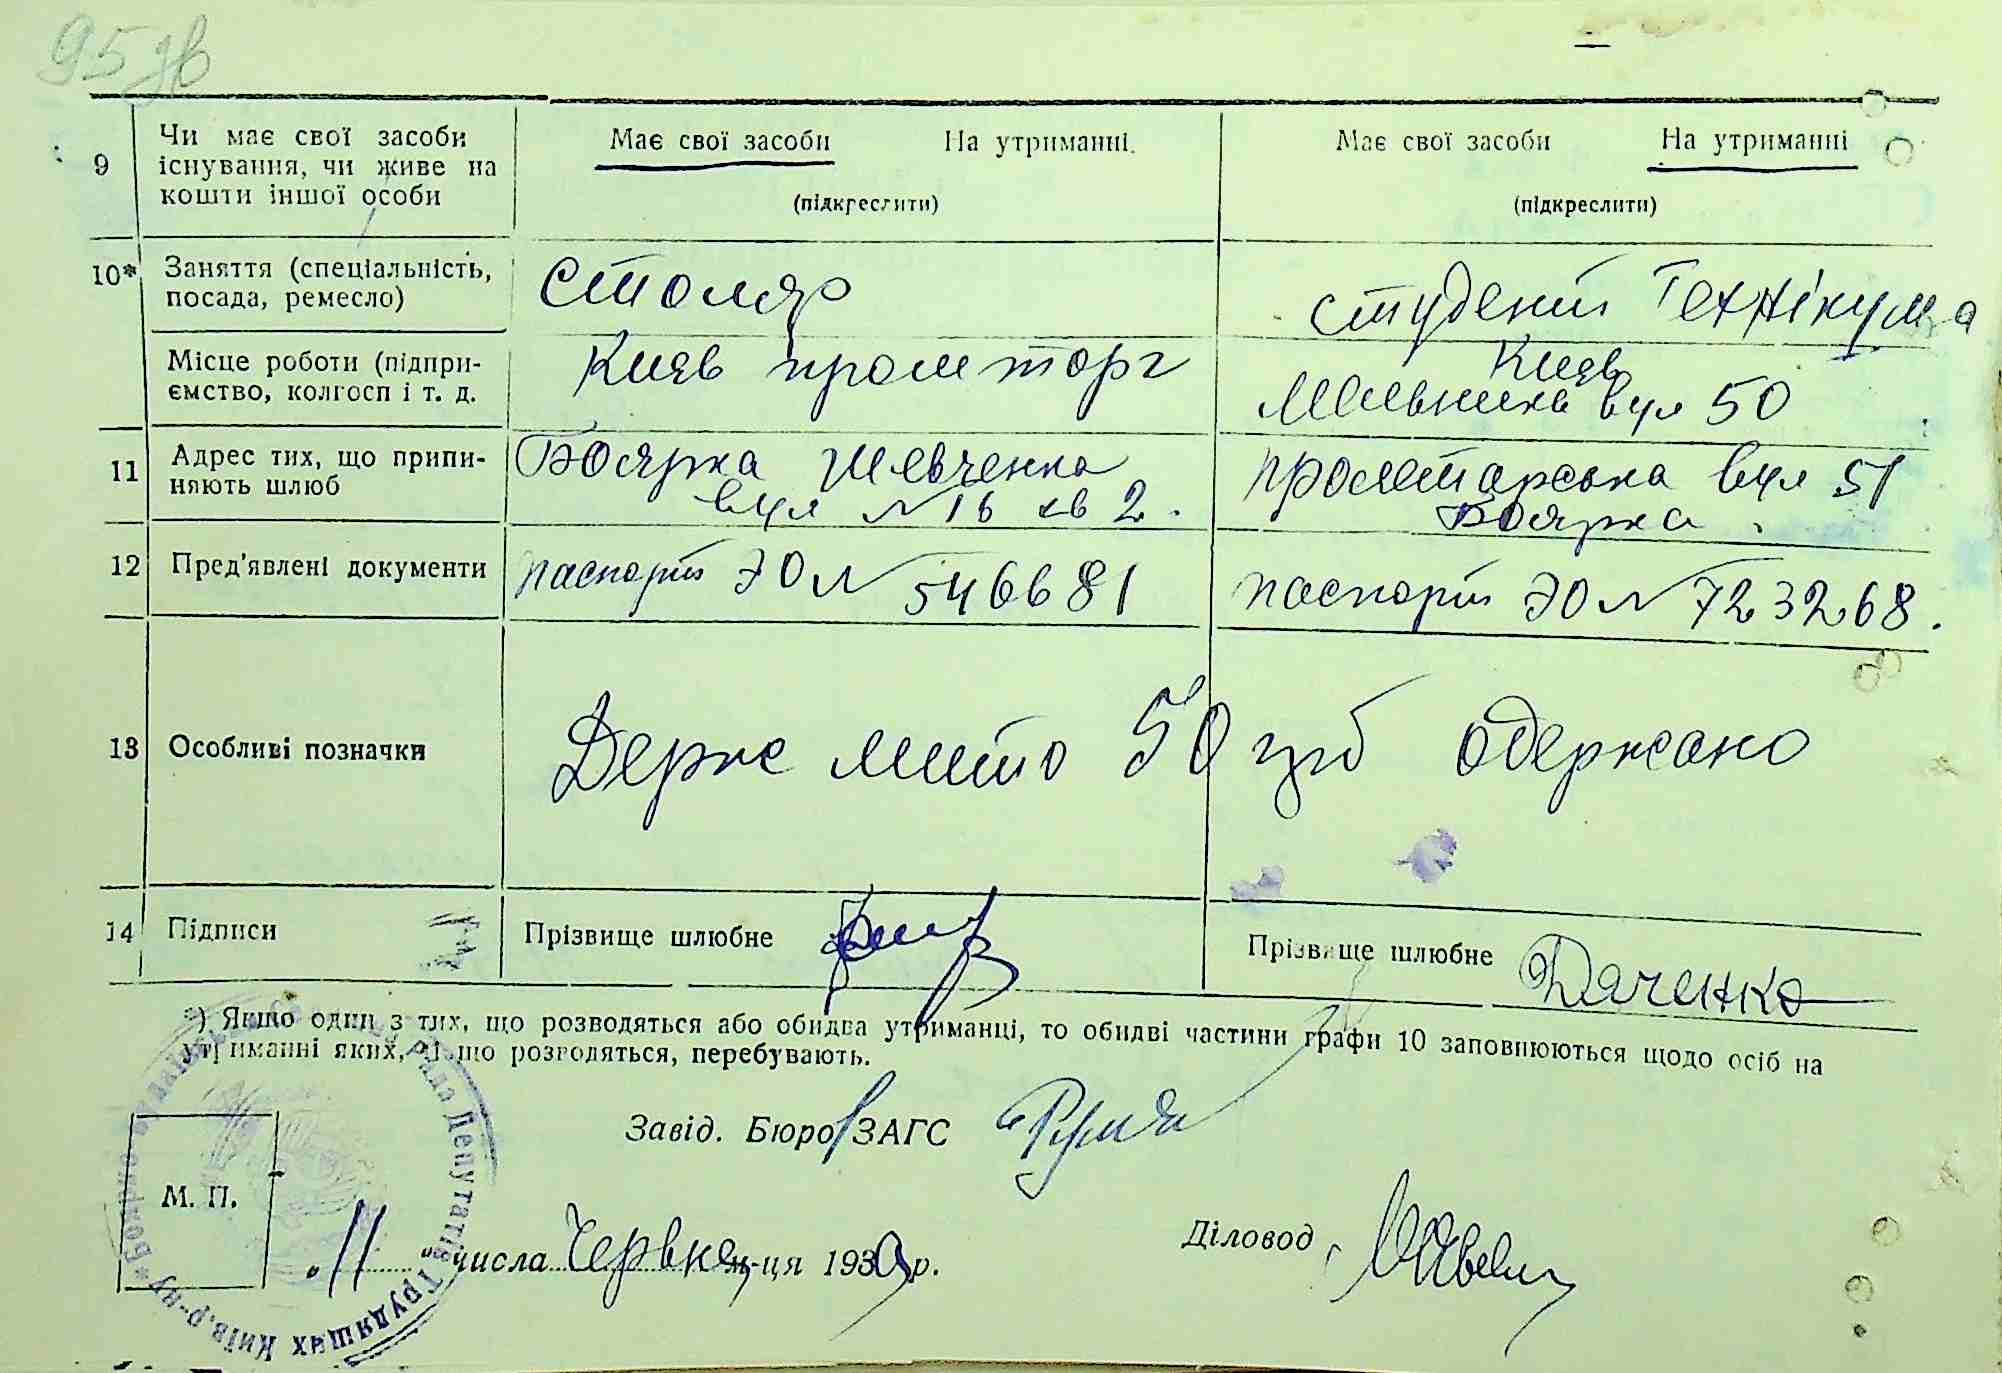 95 зв
9 Чи має свої засоби існування, чи живе на кошти іншої особи
Має свої засоби На утриманні.
(підкреслити)
Має свої засоби На утриманні
(підкреслити)
10* Заняття (спеціальність, посада, ремесло)
Столяр
студент Технікума
Місце роботи (підпри-
ємство, колгосп і т. д.
Київ промторг
Київ
Мельника вул 50
11 Адрес тих, що припи-
няють шлюб
Боярка Шевченка
вул № 16 кв 2.
пролетарська вул 51
Боярка.
12 Пред'явлені документи
паспорт ЭО № 546681
паспорт ЭО № 723268.
13 Особливі позначки
Держ мито 50 крб одержано
14 Підписи
Прізвище шлюбне
Прізвище шлюбне Дяченко
*) Якщо один з тих, що розводяться або обидва утриманці, то обидві частини графи 10 заповнюються щодо осіб на
утриманні яких, ті що розводяться, перебувають.
Завід. Бюро ЗАГС
М. П.
Рада Депутатів Трудящих Київ. р-ну
„11 числа Червня м-ця 1939 р.
Діловод